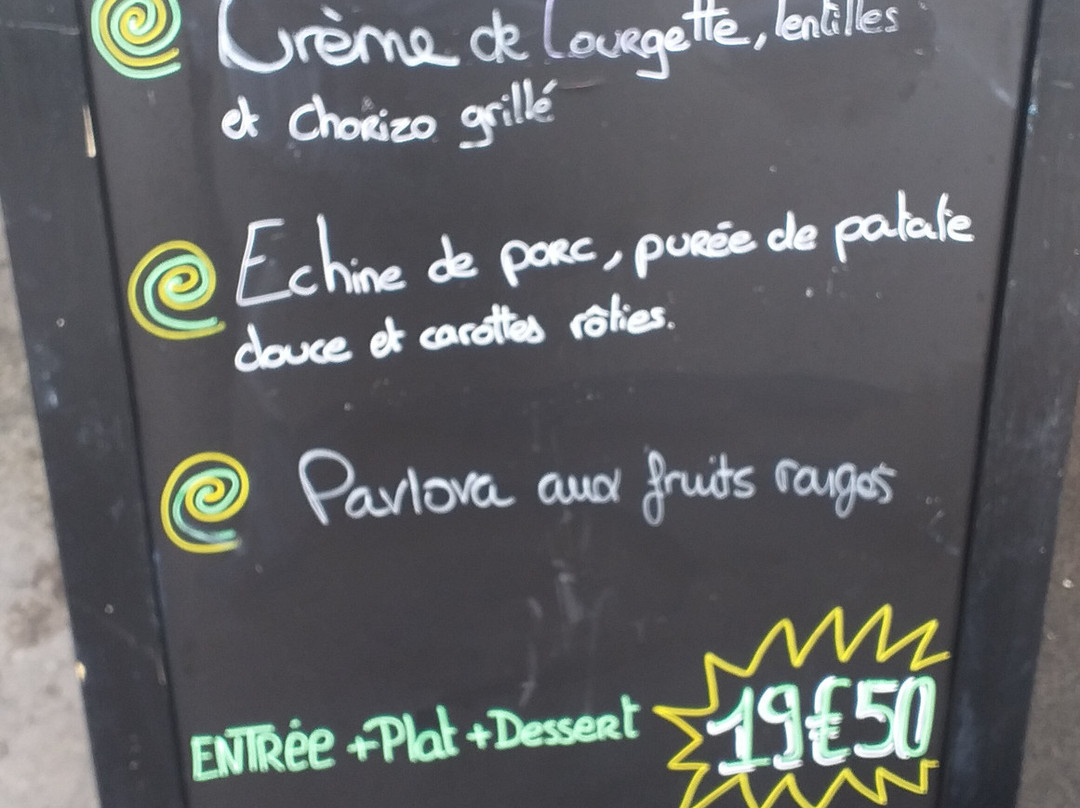 Crème de Courgette, lentilles
et Chorizo grillé
Echine de porc, purée de patate
douce et carottes rôties.
Pavlova aux fruits rouges
ENTRée +Plat +Dessert 19€50